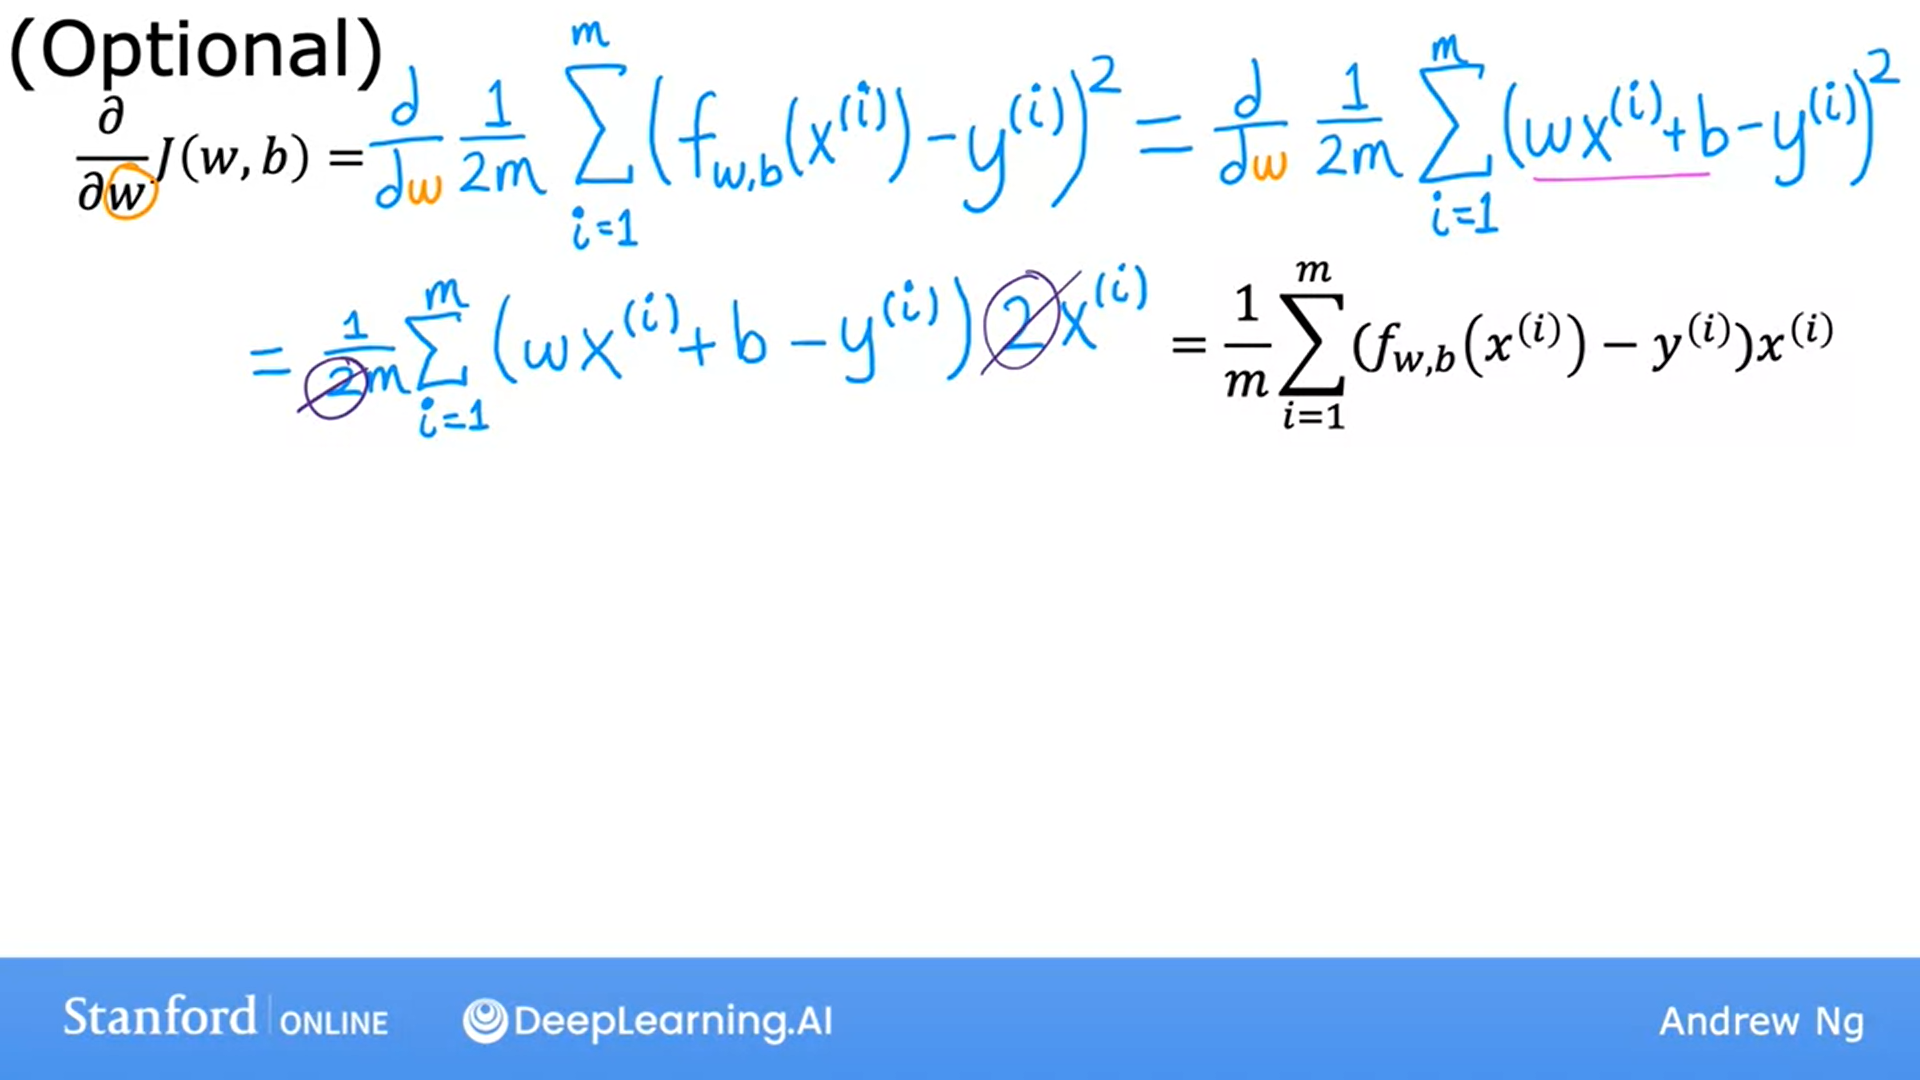 (Optional)
∂/∂w J(w, b) = d/dw 1/2m ∑_{i=1}^{m} (f_{w,b}(x^{(i)}) − y^{(i)})² = d/dw 1/2m ∑_{i=1}^{m} (wx^{(i)} + b − y^{(i)})²
= 1/2m ∑_{i=1}^{m} (wx^{(i)} + b − y^{(i)}) 2x^{(i)} = 1/m ∑_{i=1}^{m} (f_{w,b}(x^{(i)}) − y^{(i)})x^{(i)}
Stanford ONLINE DeepLearning.AI Andrew Ng